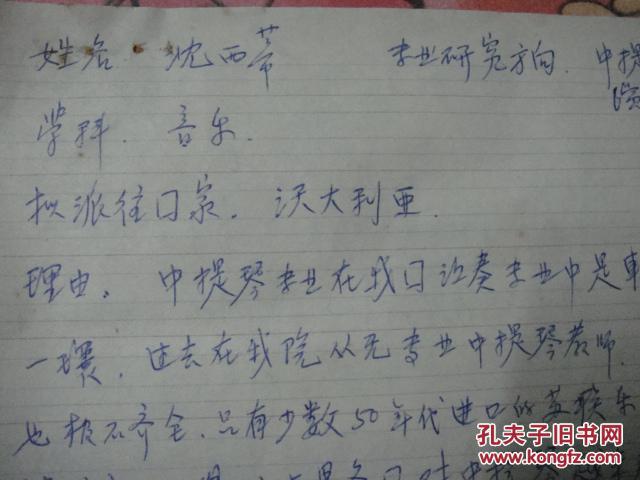 姓名 沈西蒂 专业研究方向. 中提
学科. 音乐.
拟派往囗家. 沃大利亚.
理由. 中提琴专业在我囗演奏专业中是
一环, 过去在我院从无专业中提琴教师.
也极不齐全, 只有少数50年代进口的苏联乐
孔夫子旧书网
www.kongfz.com